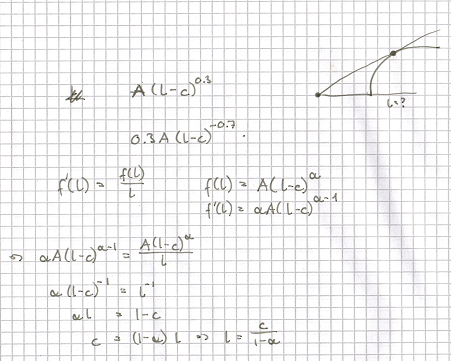 A(l-c)^0.3
l=?
0.3A(l-c)^-0.7.
f'(l) = f(l)/l    f(l) = A(l-c)^α
f'(l) = αA(l-c)^α-1
⇒ αA(l-c)^α-1 = A(l-c)^α/l
α(l-c)^-1 = l^-1
αl = l-c
c = (1-α)l ⇒ l = c/1-α